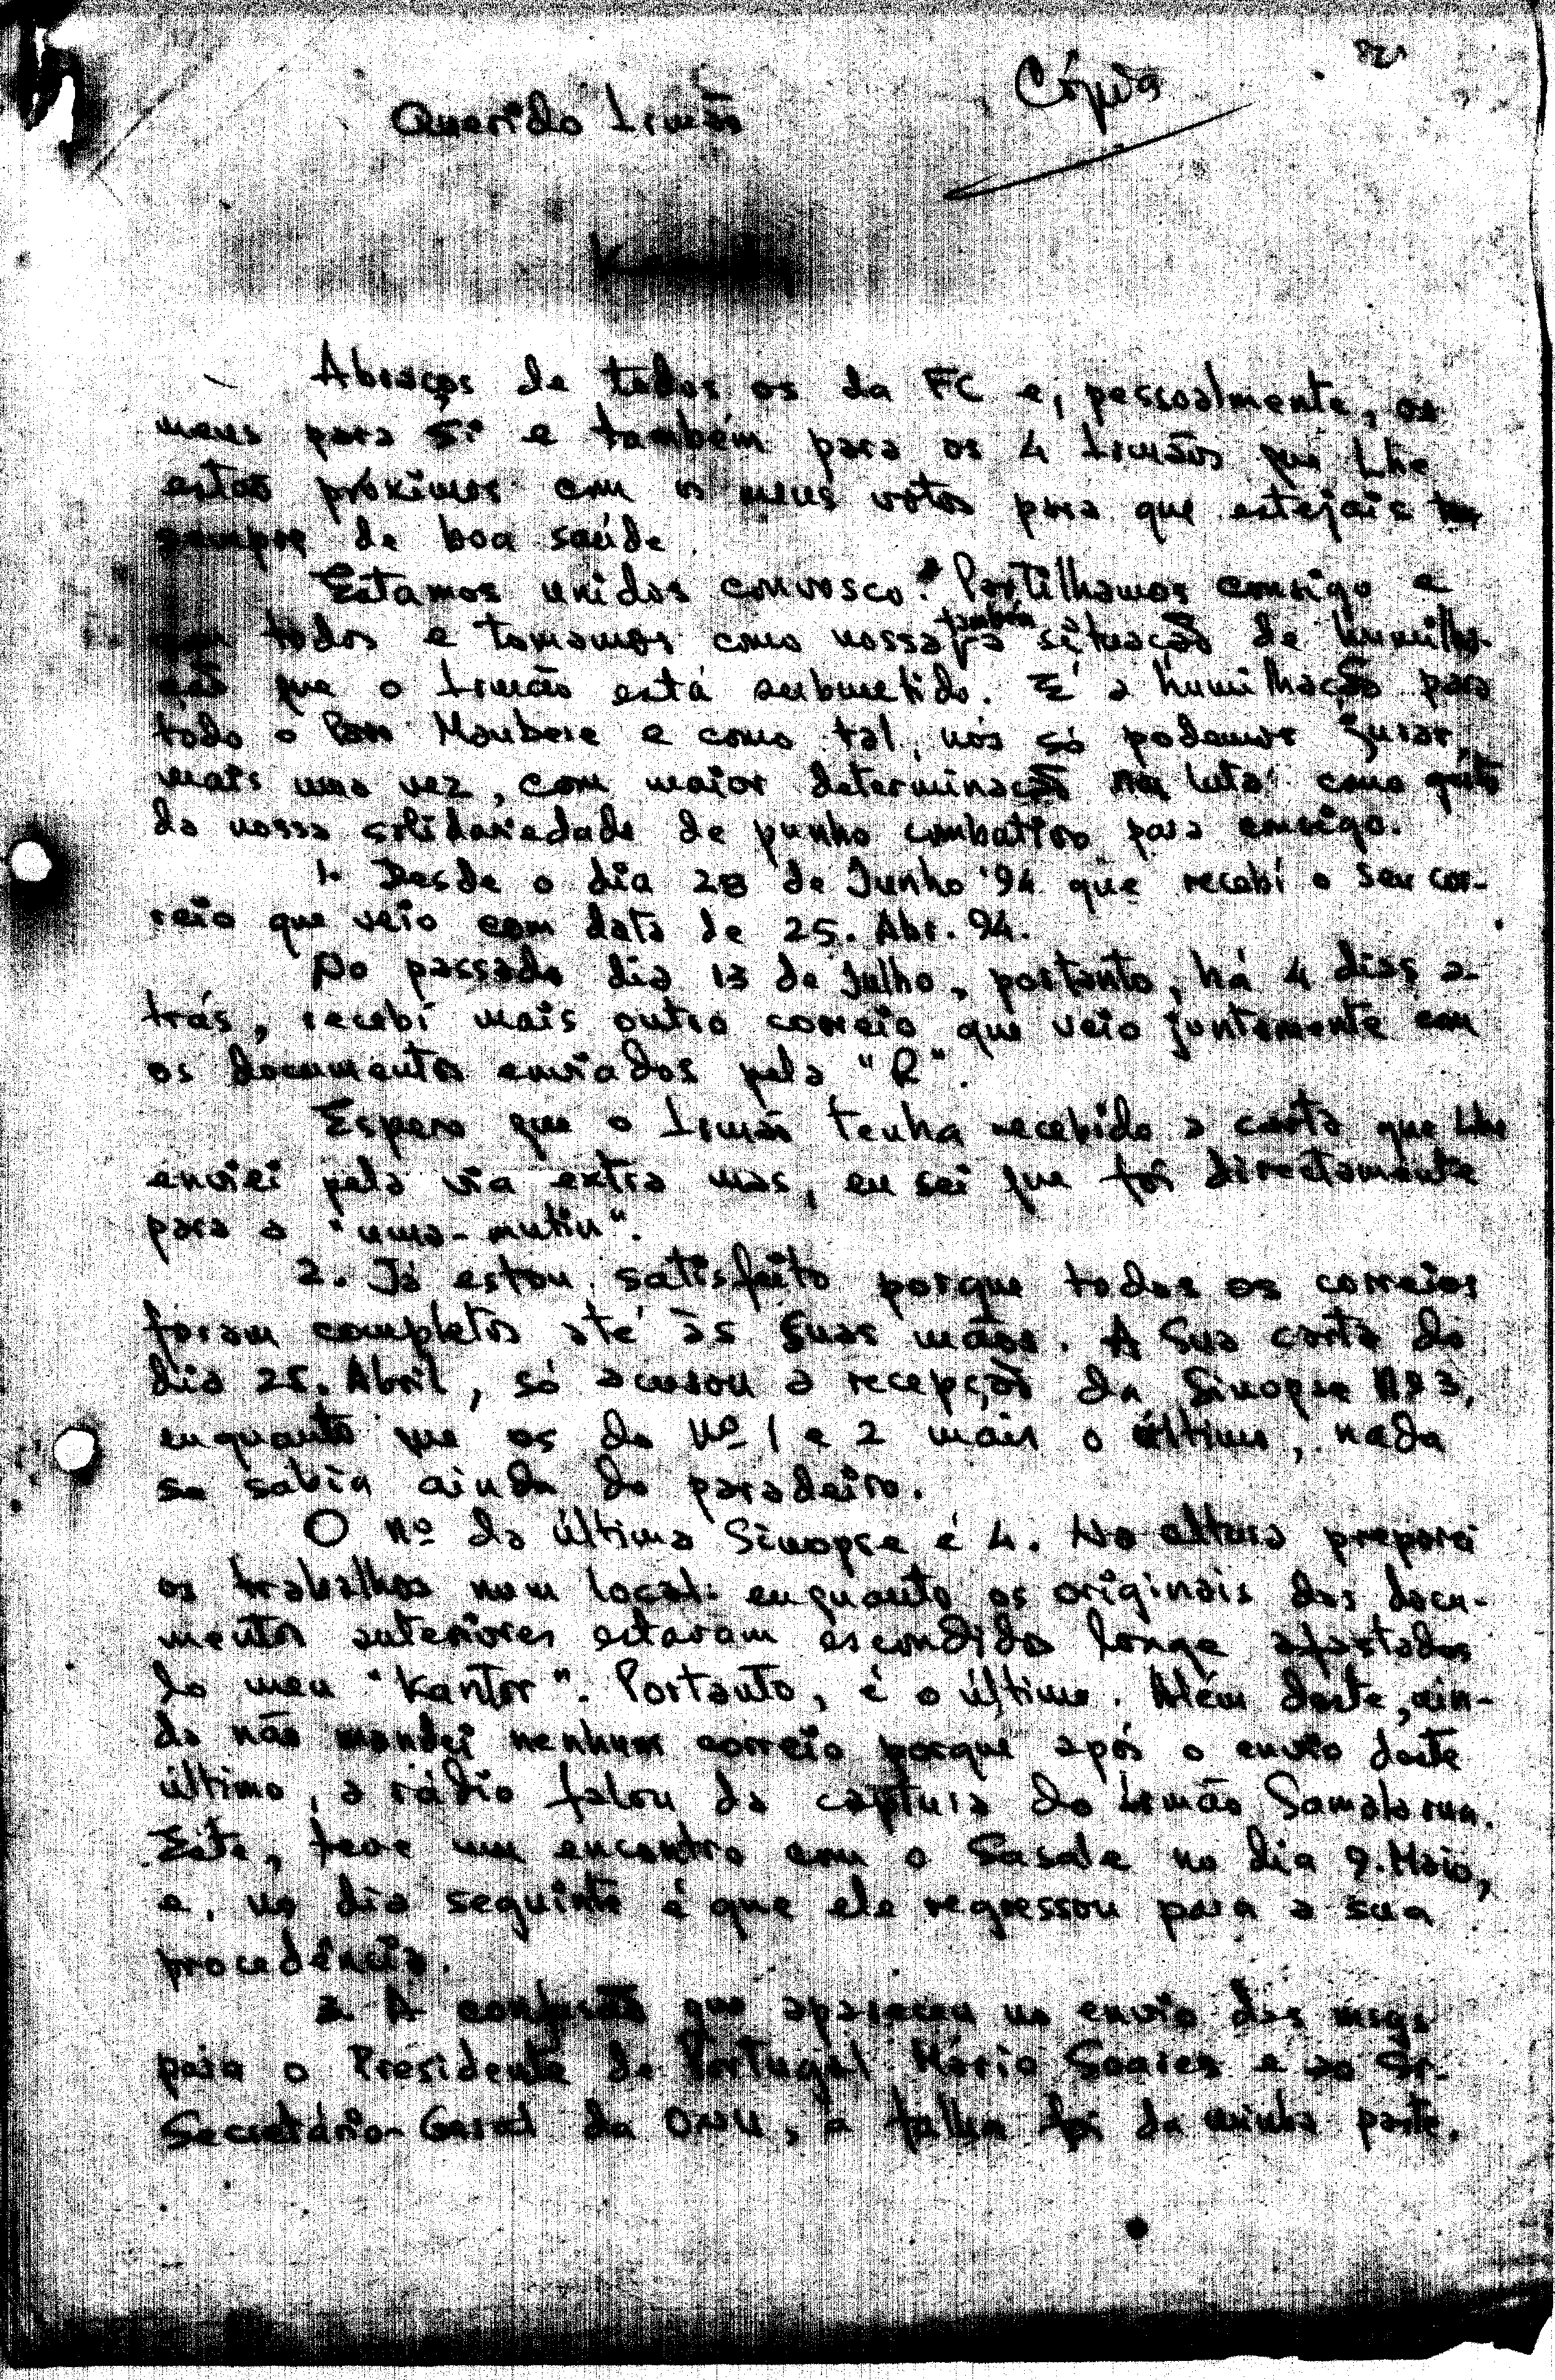 Cópia
Querido Irmão
Abraços de todos os da FC e, pessoalmente, os
meus para Si e também para os 4 Irmãos que Lhe
estão próximos com os meus votos para que estejais
sempre de boa saúde.
Estamos unidos convosco. Partilhamos consigo e
com todos e tomamos como nossa também a situação de humilha-
ção que o Irmão está submetido. É a humilhação para
todo o Povo Maubere e como tal, nós só podemos jurar,
mais uma vez, com maior determinação na luta como
da nossa solidariedade de punho combativo para consigo.
1. Desde o dia 28 de Junho '94 que recebí o seu cor-
reio que veio com data de 25. Abr. 94.
No passado dia 13 de Julho, portanto, há 4 dias a-
trás, recebí mais outro correio que veio juntamente com
os documentos enviados pela "R".
Espero que o Irmão tenha recebido a carta que Lhe
enviei pela via extra mas, eu sei que foi directamente
para a "uma-mutin".
2. Já estou satisfeito porque todos os correios
foram completos até às Suas mãos. A Sua carta do
dia 25. Abril, só acusou a recepção da Sinopse Nº 3,
enquanto que os do Nº 1 e 2 mais o último, nada
se sabia ainda do paradeiro.
O nº da última Sinopse é 4. Na altura preparei
os trabalhos num local enquanto os originais dos docu-
mentos anteriores estavam escondidos longe afastados
do meu "Kantor". Portanto, é o último. Além deste, ain-
da não mandei nenhum correio porque após o envio deste
último, a rádio falou da captura do Irmão Samalarua.
Este, teve um encontro com o Sasale no dia 9. Maio,
e, no dia seguinte é que ele regressou para a sua
procedência.
3. A confusão que apareceu no envio das msgs
para o Presidente de Portugal Mário Soares e ao Sr.
Secretário-Geral da ONU, a falha foi da minha parte.